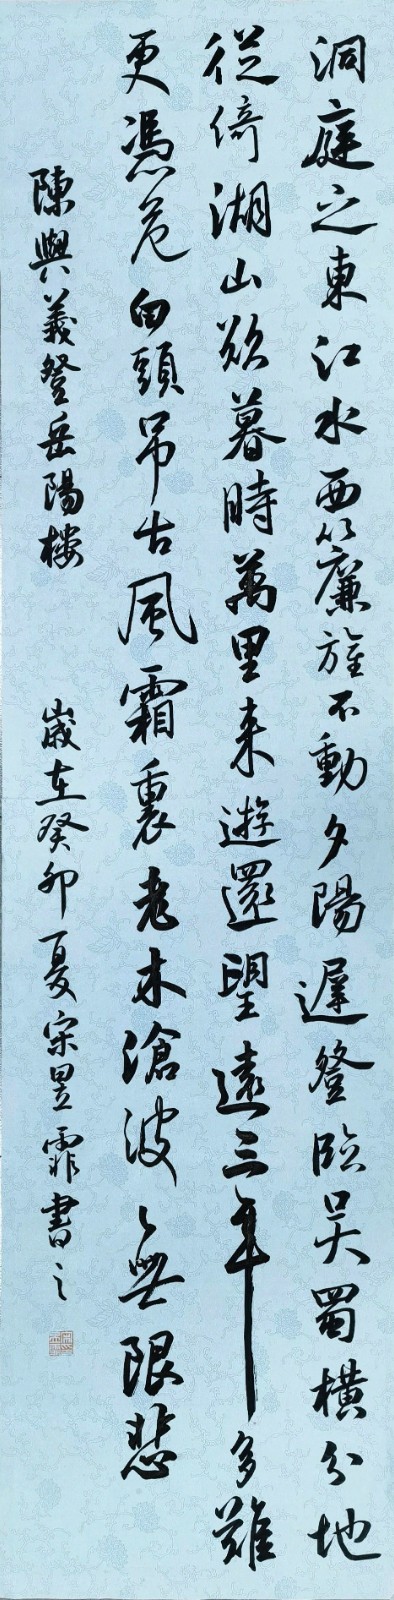 洞庭之東江水西簾旌不動夕陽遲登臨吳蜀橫分地
徙倚湖山欲暮時萬里来遊還望遠三年多難
更憑危白頭吊古風霜裏老木滄波無限悲
陳與義登岳陽楼 歲在癸卯夏宋昱霏書之